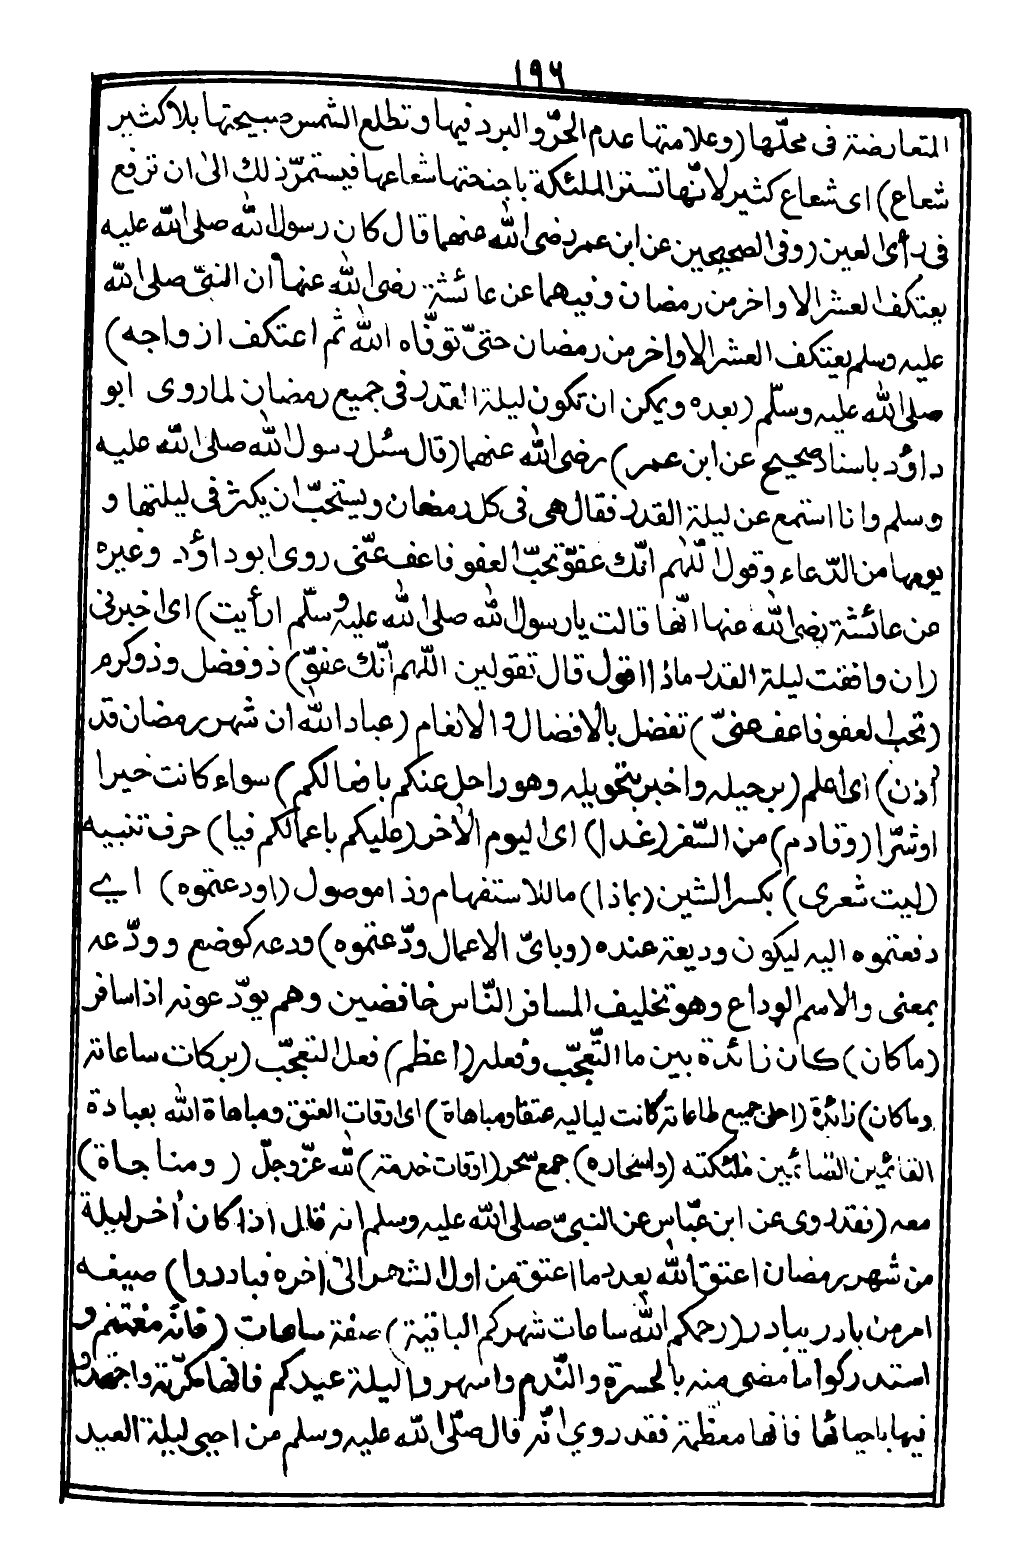 ١٩٦
المتعارضة فى محلّها (وعلامتها عدم الحرّ والبرد فيها وتطلع الشمس صبيحتها بلا كثير
شعاع) اى شعاع كثير لانّها تستر الملئكة باجنحتها شعاعها فيستمرّ ذلك الى ان ترفع
فى رأى العين (وفى الصحيحين عن ابن عمر رضى الله عنهما قال كان رسول الله صلى الله عليه
يعتكف العشر الاواخر من رمضان وفيهما عن عائشة رضى الله عنها ان النبىّ صلى الله
عليه وسلم يعتكف العشر الاواخر من رمضان حتىّ توفّاه الله ثم اعتكف ازواجه)
صلى الله عليه وسلّم (بعده ويمكن ان تكون ليلة القدر فى جميع رمضان لما روى ابو
داؤد باسناد صحيح عن ابن عمر) رضى الله عنهما (قال سئل رسول الله صلى الله عليه
وسلم وانا استمع عن ليلة القدر فقال هى فى كل رمضان ويستحبّ ان يكثر فى ليلتها و
يومها من الدّعاء وقول اللّهم انّك عفوّ تحبّ العفو فاعف عنّى روى ابو داؤد وغيره
عن عائشة رضى الله عنها انّها قالت يا رسول الله صلى الله عليه وسلّم ارأيت) اى اخبرنى
(ان وافقت ليلة القدر ماذا اقول قال تقولين اللّهم انّك عفوّ) ذو فضل وذو كرم
(تحب العفو فاعف عنىّ) تفضل بالافضال والانعام (عباد الله ان شهر رمضان قد
اُذن) اى اعلم (برحيله واخبر بتحويله وهو راحل عنكم بافعالكم) سواء كانت خيرا
او شرّا (وقادم) من السّفر (غدا) اى اليوم الاٰخر (عليكم باعمالكم فيا) حرف تنبيه
(ليت شعرى) بكسر الشين (بماذا) ما للاستفهام وذا موصول (اودعتموه) اے
دفعتموه اليه ليكون وديعة عنده (وباىّ الاعمال ودّعتموه) ودعه كوضع وودّعه
بمعنى والاسم الوداع وهو تخليف المسافر النّاس خافضين وهم يودّعونه اذا سافر
(ما كان) كان زائدة بين ما التّعجّب وفعله (اعظم) فعل التعجّب (بركات ساعاته
وما كان) زائدة (احلى جميع طاعاته كانت لياليه عتقا ومباهاة) اى اوقات العتق ومباهاة الله بعبادة
القائمين الصّائمين ملئكته (واسحاره) جمع سحر (اوقات خدمة) لله عزّ وجلّ (ومناجاة)
معه (فقد روى عن ابن عبّاس عن النبىّ صلى الله عليه وسلم انه قال اذا كان اٰخر ليلة
من شهر رمضان اعتق الله بعدد ما اعتق من اول الشهر الىٰ اٰخره فبادروا) صيغه
امر من بادر يبادر (رحمكم الله ساعات شهركم الباقية) صفة ساعات (فانّه مغتنم و
استدركوا ما مضى منه بالحسرة والنّدم واسهروا ليلة عيدكم فانّها مكرّمة واجتهدوا
فيها باحيائها فانّها معظّمة فقد روي انّه قال صلّى الله عليه وسلم من احيى ليلة العيد